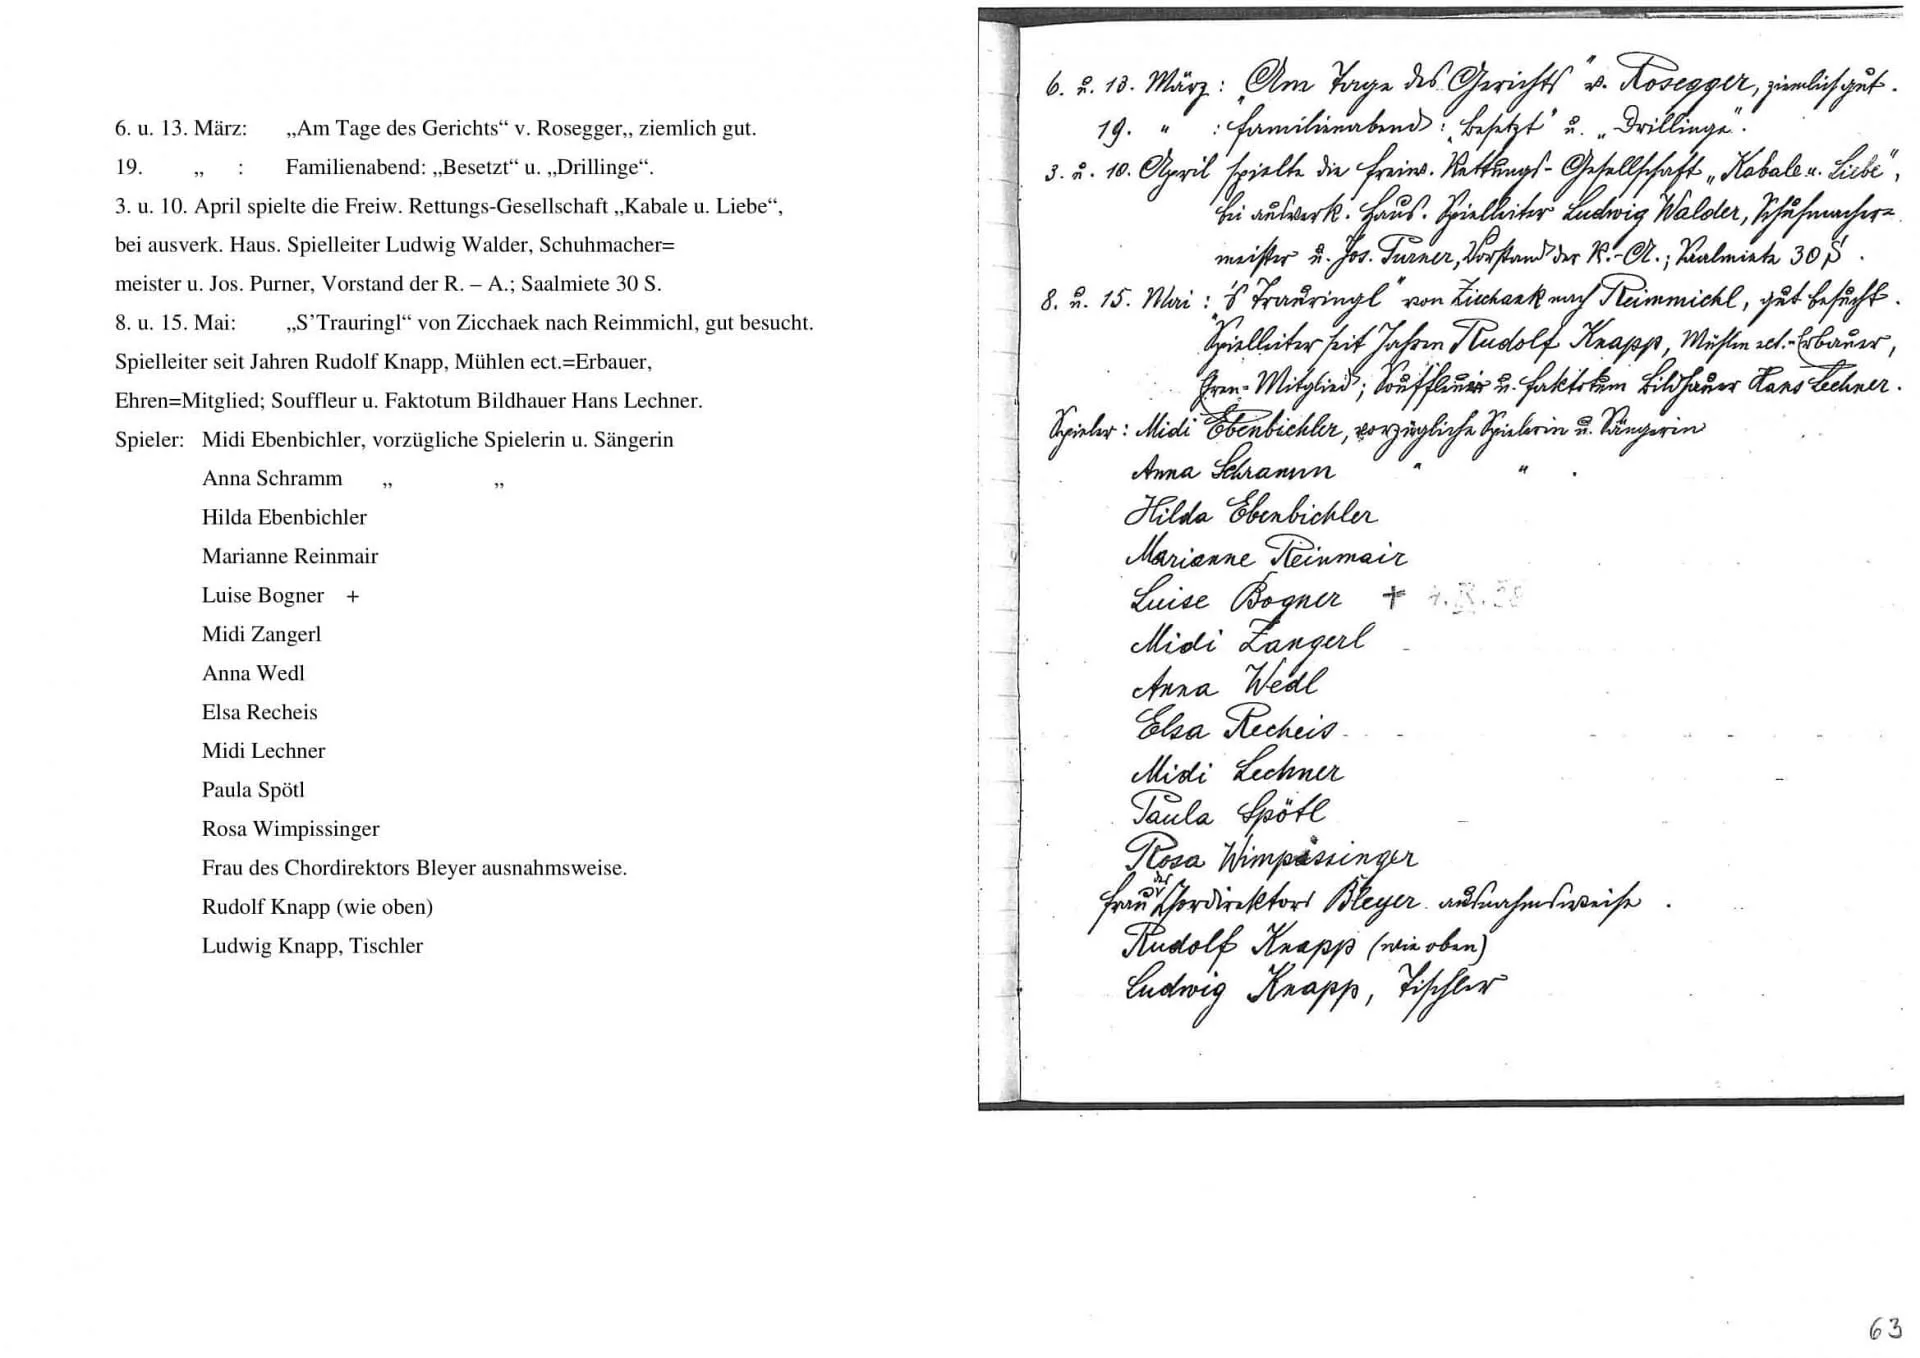 6. u. 13. März: „Am Tage des Gerichts“ v. Rosegger,, ziemlich gut.
19. „ : Familienabend: „Besetzt“ u. „Drillinge“.
3. u. 10. April spielte die Freiw. Rettungs-Gesellschaft „Kabale u. Liebe“,
bei ausverk. Haus. Spielleiter Ludwig Walder, Schuhmacher=
meister u. Jos. Purner, Vorstand der R. – A.; Saalmiete 30 S.
8. u. 15. Mai: „S’Trauringl“ von Zicchaek nach Reimmichl, gut besucht.
Spielleiter seit Jahren Rudolf Knapp, Mühlen ect.=Erbauer,
Ehren=Mitglied; Souffleur u. Faktotum Bildhauer Hans Lechner.
Spieler: Midi Ebenbichler, vorzügliche Spielerin u. Sängerin
Anna Schramm „ „
Hilda Ebenbichler
Marianne Reinmair
Luise Bogner +
Midi Zangerl
Anna Wedl
Elsa Recheis
Midi Lechner
Paula Spötl
Rosa Wimpissinger
Frau des Chordirektors Bleyer ausnahmsweise.
Rudolf Knapp (wie oben)
Ludwig Knapp, Tischler
6. u. 13. März: „Am Tage des Gerichts“ v. Rosegger, ziemlich gut.
19. " : Familienabend: „Besetzt“ u. „Drillinge“.
3. u. 10. April spielte die freiw. Rettungs-Gesellschaft „Kabale u. Liebe“,
bei ausverk. Haus. Spielleiter Ludwig Walder, Schuhmacher=
meister u. Jos. Purner, Vorstand der R.-A.; Saalmiete 30 S.
8. u. 15. Mai: „'s Trauringl“ von nach Reimmichl, gut besucht.
Spielleiter seit Jahren Rudolf Knapp, Mühlen ect.-Erbauer,
Ehren=Mitglied; Souffleur u. Faktotum Bildhauer Hans Lechner.
Spieler: Midi Ebenbichler, vorzügliche Spielerin u. Sängerin
Anna Schramm " " .
Hilda Ebenbichler
Marianne Reinmair
Luise Bogner +
Midi Zangerl
Anna Wedl
Elsa Recheis
Midi Lechner
Paula Spötl
Rosa Wimpissinger
Frau des Chordirektors Bleyer ausnahmsweise.
Rudolf Knapp (wie oben)
Ludwig Knapp, Tischler
63